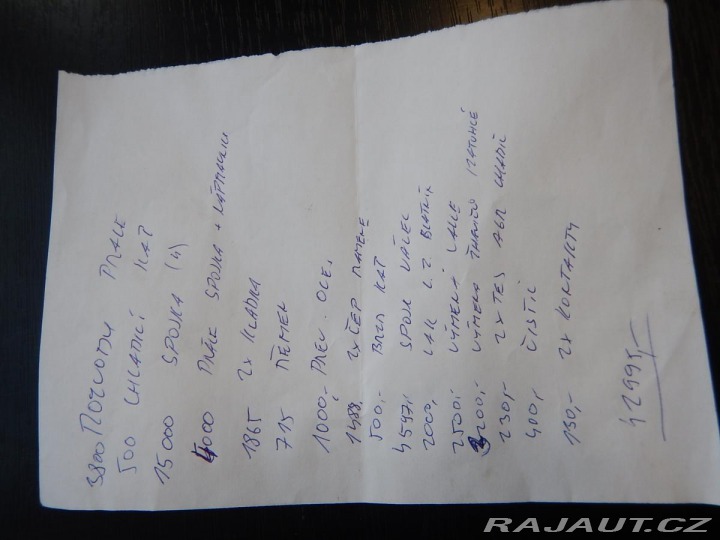 3800 ROZVODY PRÁCE
500 CHLADÍCÍ KAP
15000 SPOJKA (4)
4000 PRÁCE SPOJKA +
1865 2X KLADKA
715 ŘEMEN
1000,- PŘEV. OLEJ
1488,- 2X ČEP RAMENE
500,- BRZD KAP
4597,- SPOJ. VÁLEC
2000,- LAK L.Z BLATNÍK
2500,- VÝMĚNA VÁLCE
3200,- VÝMĚNA
230,- 2X TĚS AGR CHLADIČ
400,- ČISTIČ
150,- 2X KONTAKTY
42995,-
RAJAUT.CZ